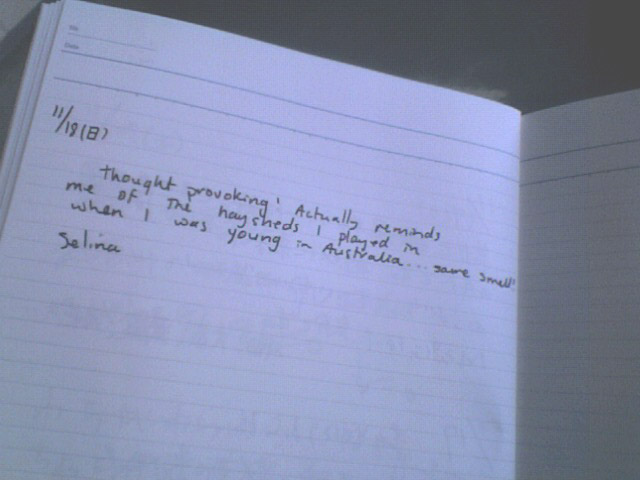 11/18(日)
thought provoking! Actually reminds
me of the haysheds I played in
when I was young in Australia... same smell!
Selina